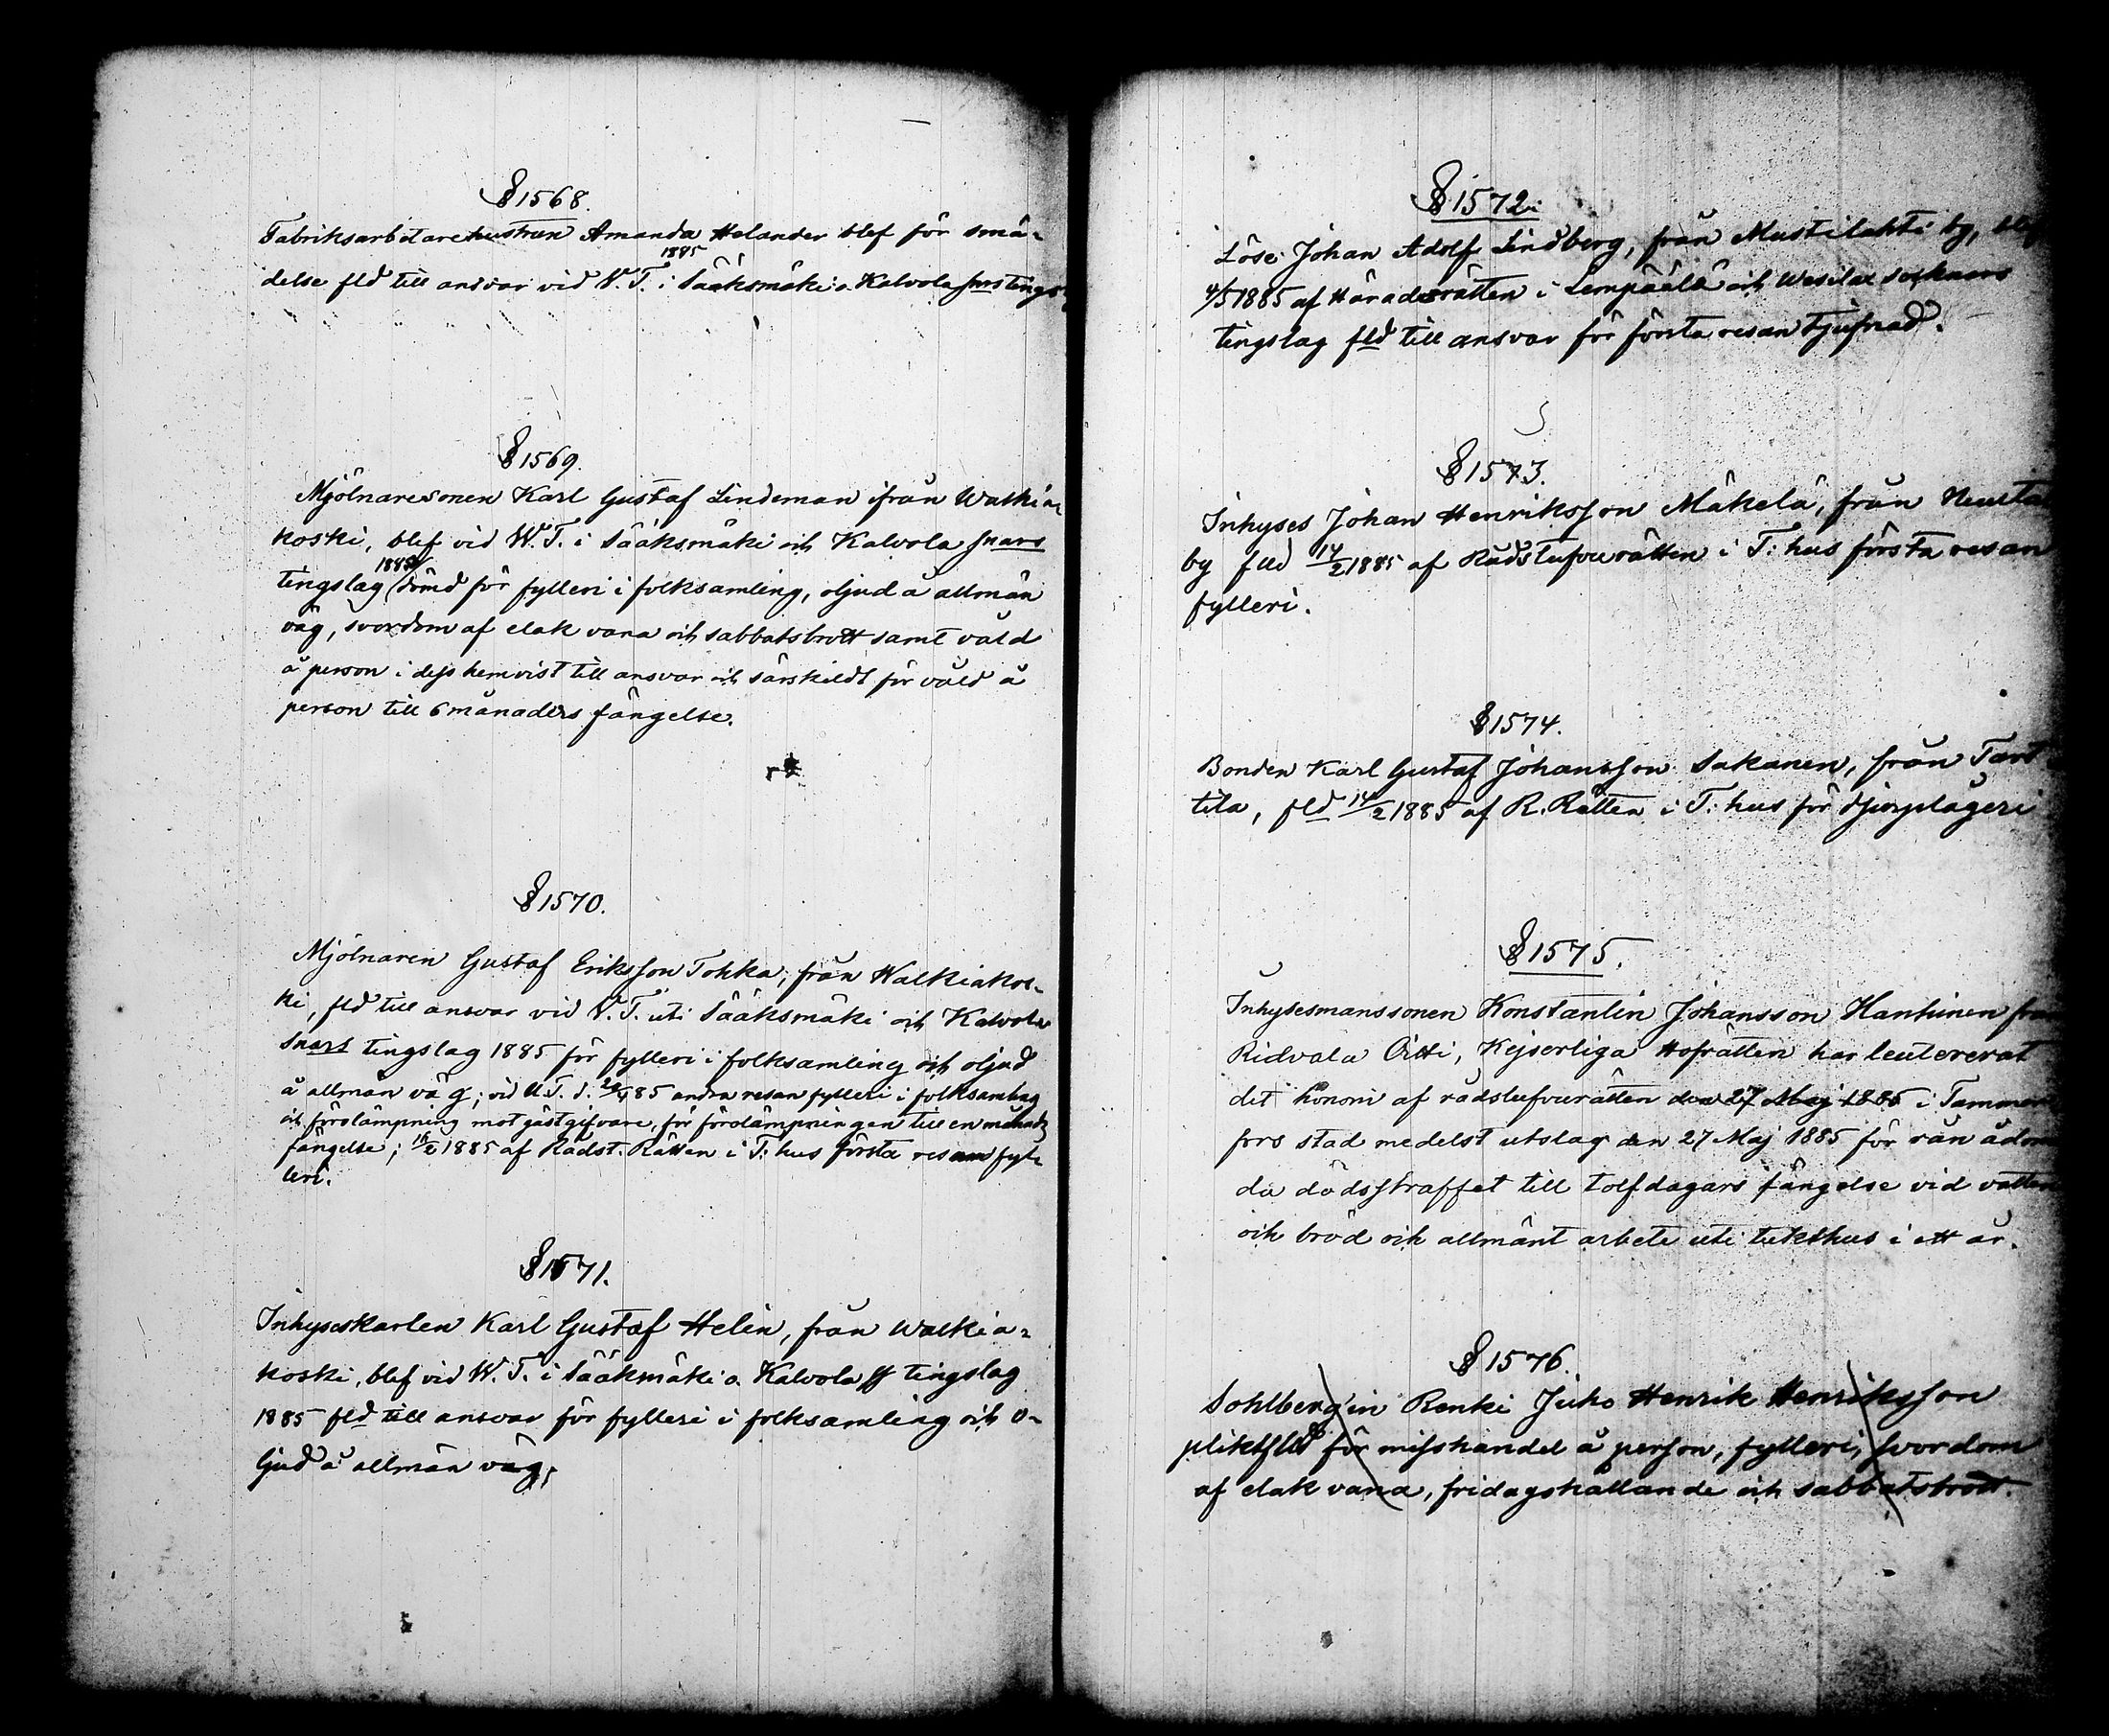 § 1568.
Fabriksarbetarehustrun Amanda Helander blef för smä-
1885
delse fld till ansvar vid V. T. i Sääksmäki o. Kalvola snrs tings-
§ 1569.
Mjölnaresonen Karl Gustaf Lindeman ifrån Walkia-
koski, blef vid W. T. i Sääksmäki och Kalvola snars
1885
tingslag dömd för fylleri i folksamling, oljud å allmän
väg, svordom af elak vana och sabbatsbrott samt våld
å person i dess hemvist till ansvar och särskildt för våld å
person till 6 månaders fängelse.
§ 1570.
Mjölnaren Gustaf Eriksson Tokka, från Walkiakos-
ki, fld till ansvar vid V. T. uti Sääksmäki och Kalvola
snars tingslag 1885 för fylleri i folksamling och oljud
å allmän väg; vid U. T. d. 85 andra resan fylleri i folksamling
och förolämpning mot gästgifvare, för förolämpningen till en månads
fängelse; 1885 af Rådst. Rätten i T:hus första resan fyl-
leri.
§ 1571.
Inhyseskarlen Karl Gustaf Helin, från Walkia-
koski, blef vid W. T. i Sääkmäki o. Kalvola ss tingslag
1885 fld till ansvar för fylleri i folksamling och o-
ljud å allmän väg.
§ 1572.
Löse Johan Adolf Lindberg, från Mustilahti by, blef
4/5 1885 af Häradsrätten i Lempäälä och Wesilax socknars
tingslag fld till ansvar för första resan tjufnad.
§ 1573.
Inhyses Johan Henriksson Mäkelä, från
by fld 14/2 1885 af Rådstufvurätten i T:hus första resan
fylleri.
§ 1574.
Bonden Karl Gustaf Johansson Sakanen, från Tart
tila, fld 14/2 1885 af R. Rätten i T:hus för djurplågeri
§ 1575.
Inhysesmanssonen Konstantin Johansson Hanhinen från
Ridvala Oitti, Kejserliga Hofrätten har leutererat
det honom af rådstufvurätten den 27 Maj 1885 i Tammer
fors stad medelst utslag den 27 Maj 1885 för rån ådöm
da dödsstraffet till tolf dagars fängelse vid vatten
och bröd och allmänt arbete uti tukthus i ett år.
§ 1576.
Sohlberg'in Renki Juho Henrik Henriksson
pliktfld för misshandel å person, fylleri, svordom
af elak vana, fridagshållande och sabbatsbrott.